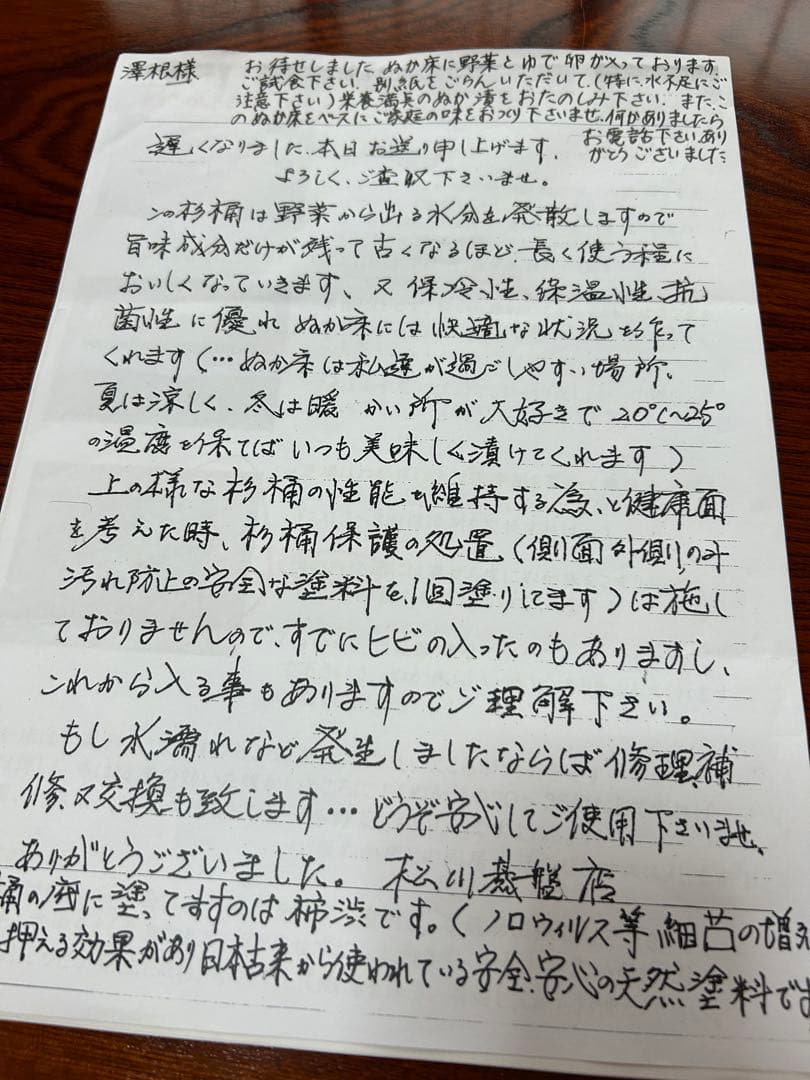 澤根様
お待せしました。ぬか床に野菜とゆで卵が入っております。
ご試食下さい。別紙をごらんいただいて、(特に、水不足にご
注意下さい)栄養満点のぬか漬をおたのしみ下さい。また、こ
のぬか床をベースにご家庭の味をおつくり下さいませ。何かありましたら
お電話下さい。あり
がとうございました
遅くなりました、本日お送り申し上げます。
よろしく、ご査収下さいませ。
この杉桶は野菜から出る水分を発散しますので
旨味成分だけが残って古くなるほど、長く使う程に
おいしくなっていきます、又保冷性、保温性、抗
菌性に優れぬか床には快適な状況を作って
くれます(…ぬか床は私達が過ごしやすい場所、
夏は涼しく、冬は暖かい所が大好きで20℃~25°
の温度を保てばいつも美味しく漬けてくれます)
上の様な杉桶の性能を維持する為、と健康面
を考えた時、杉桶保護の処置(側面外側の汁
汚れ防止の安全な塗料を、1回塗りしてます)は施し
ておりませんので、すでにヒビの入ったのもありますし、
これから入る事もありますのでご理解下さい。
もし水濡れなど発生しましたならば修理、補
修又交換も致します…どうぞ安心してご使用下さいませ。
ありがとうございました。 松川碁盤店
桶の底に塗ってますのは柿渋です。(ノロウィルス等細菌の増え
押える効果があり日本古来から使われている安全、安心の天然塗料です